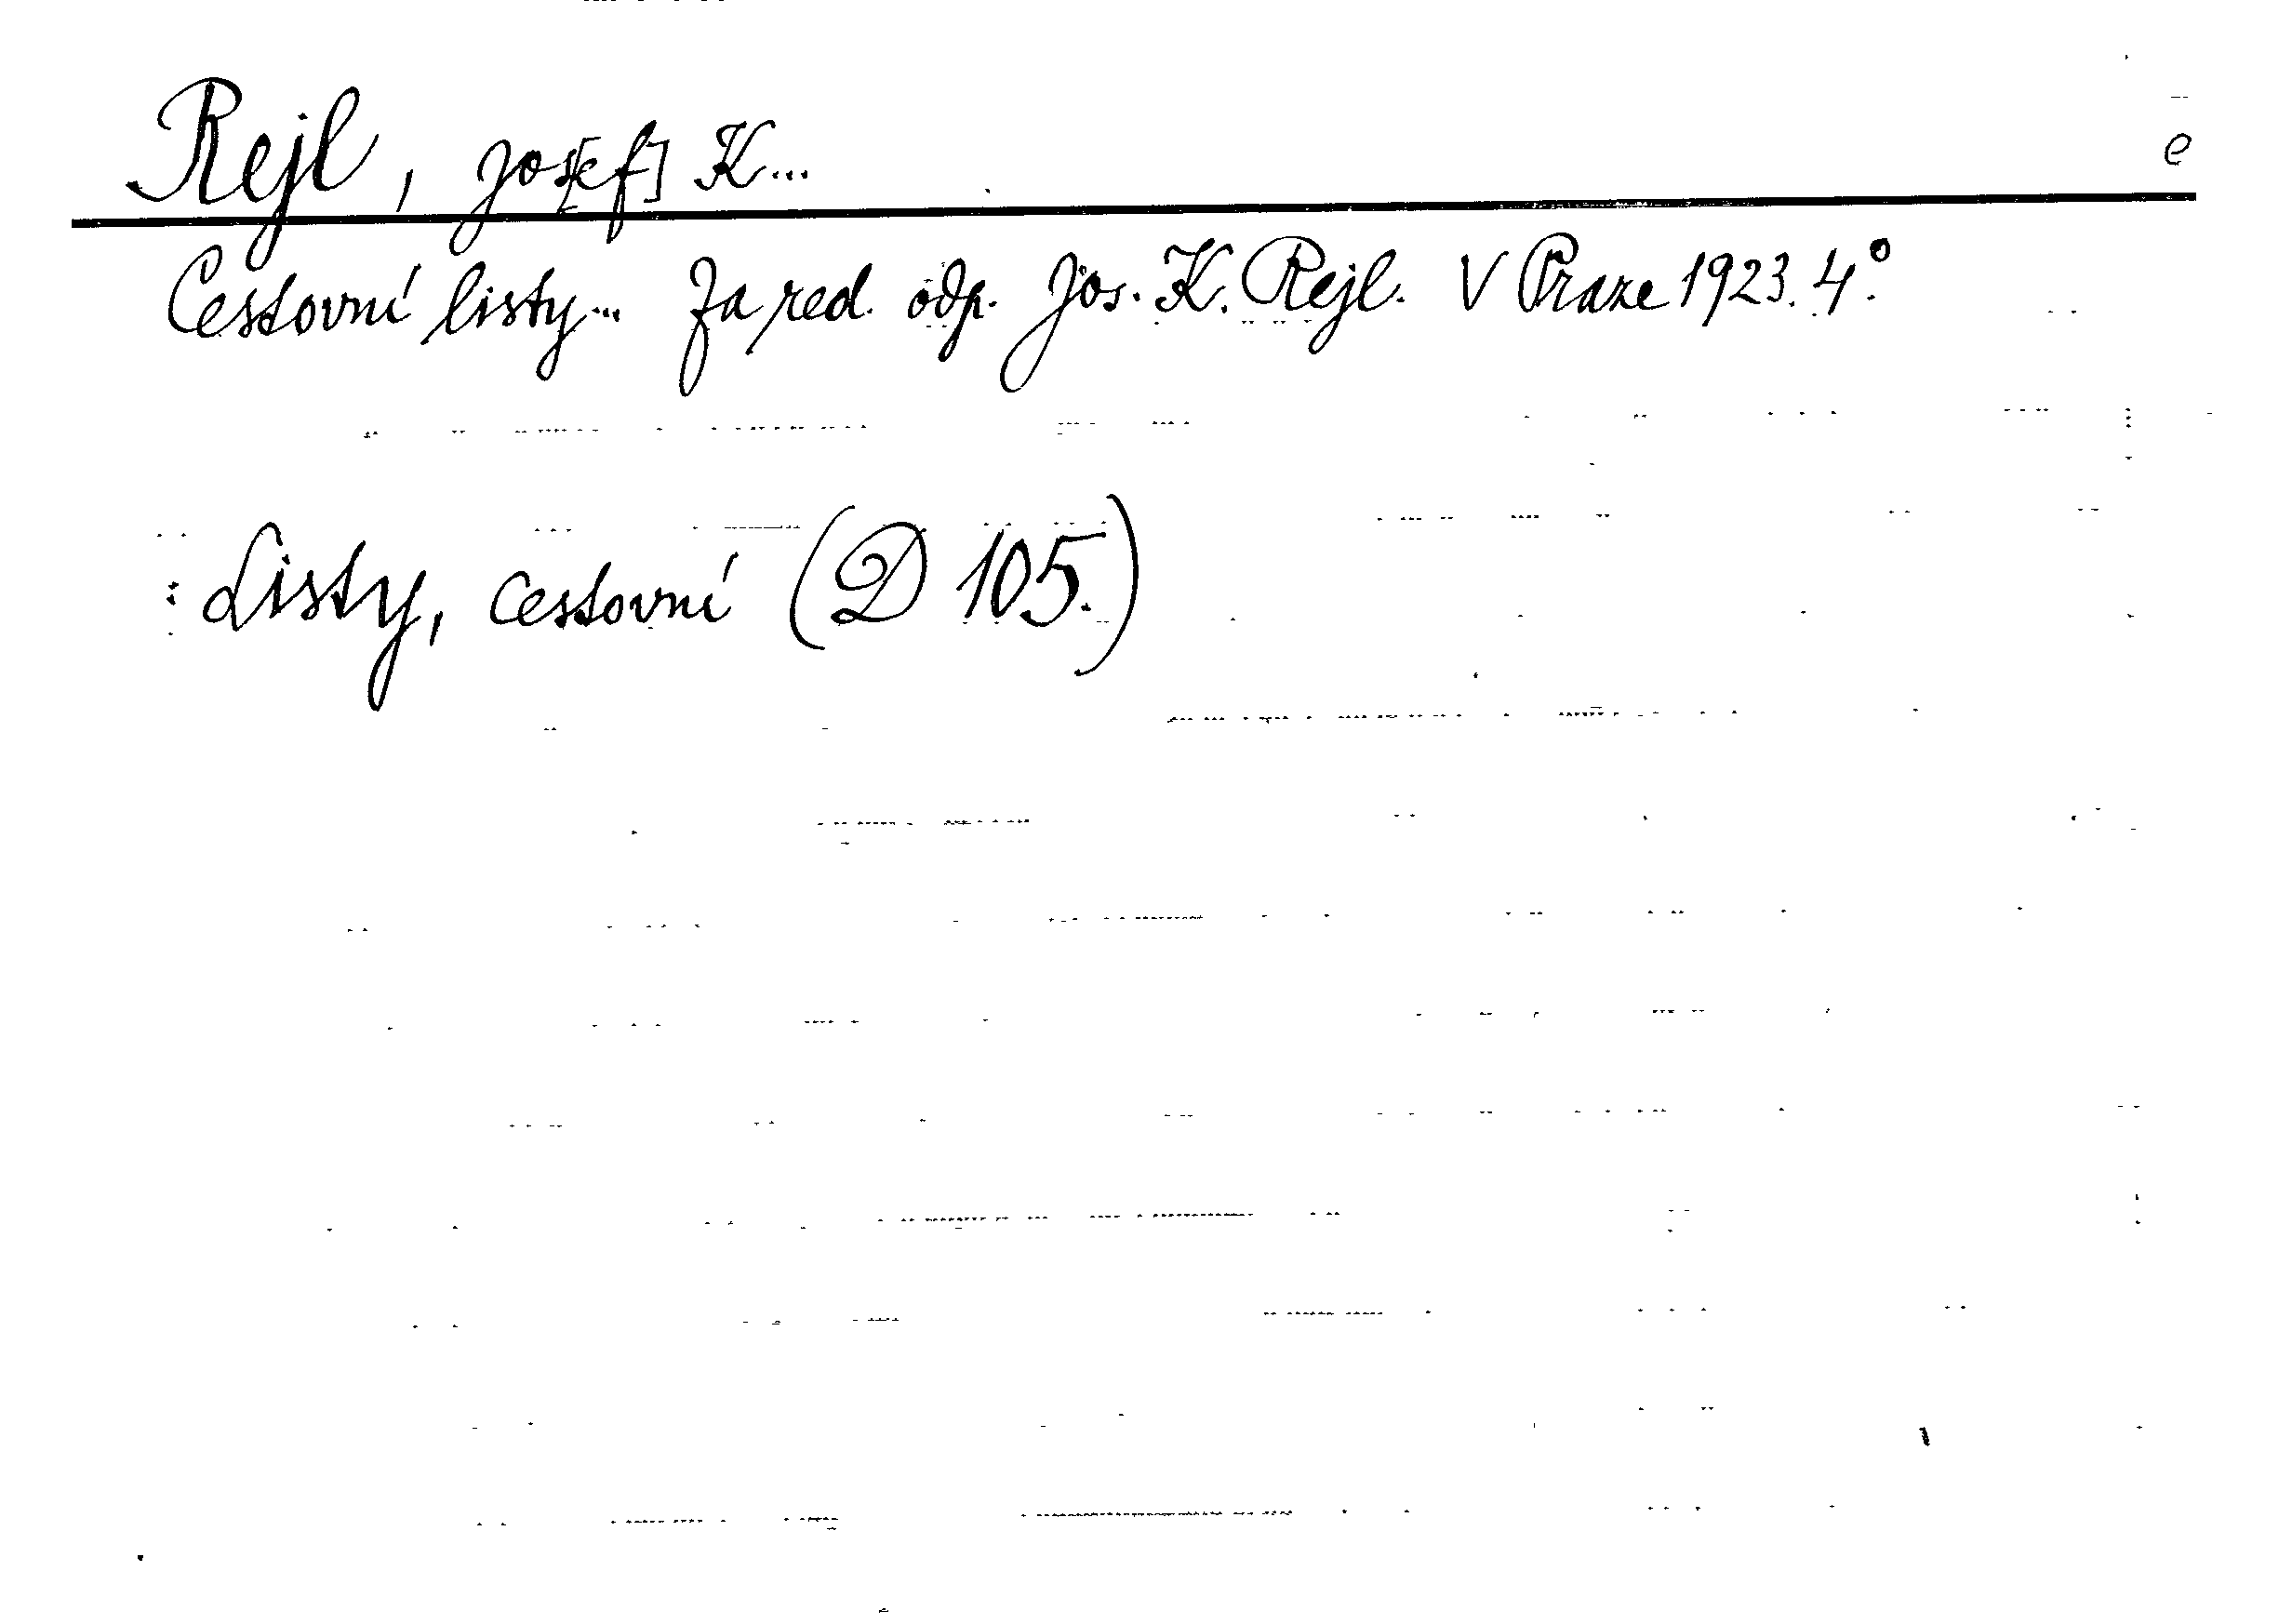 Rejl, Jos[ef] K...
e
Cestovní listy... Za red. odp. Jos. K. Rejl. V Praze 1923. 4°.
Listy, cestovní (D 105.)